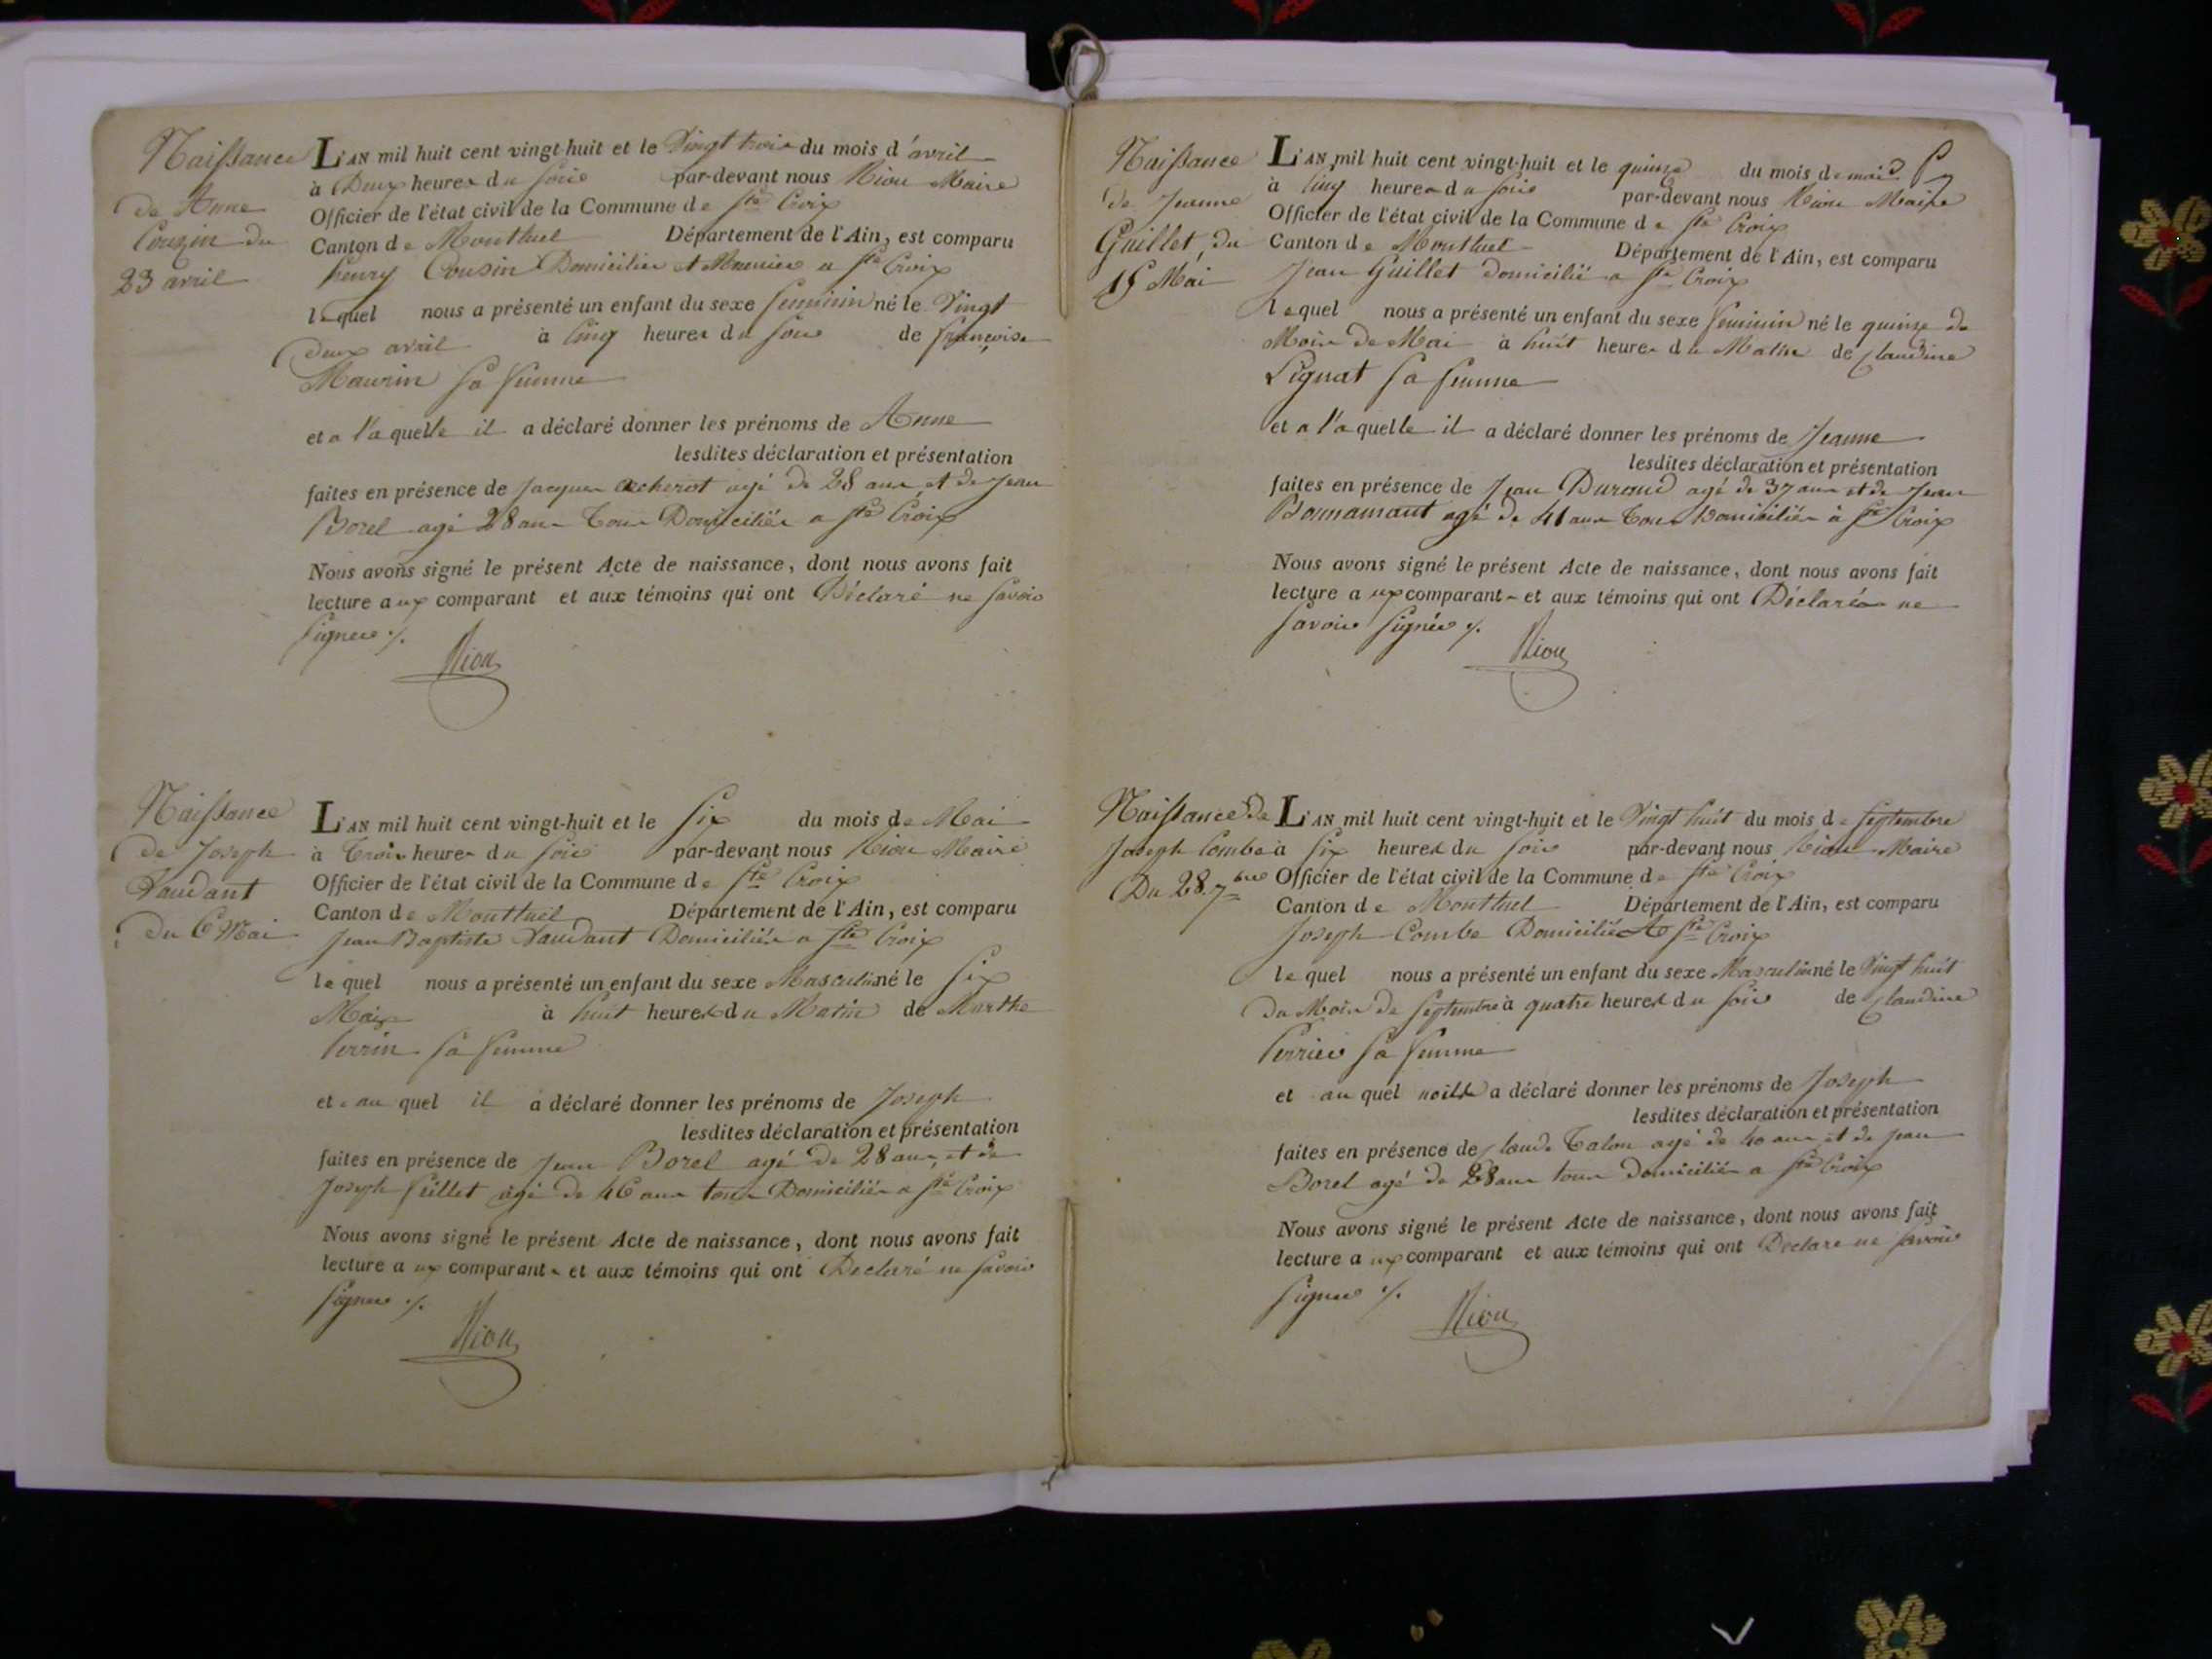 Naissance
de Anne
Couzin du
23 avril
L'AN mil huit cent vingt-huit et le Vingt trois du mois d'avril
à Deux heures du soir par-devant nous Riou Maire
Officier de l'état civil de la Commune de Ste Croix
Canton de Montluel Département de l'Ain, est comparu
henry Cousin Domicilier et Meunier a Ste Croix
lequel nous a présenté un enfant du sexe feminin né le Vingt
deux avril à Cinq heures du soir de françoise
Maurin sa femme
et a laquelle il a déclaré donner les prénoms de Anne
lesdites déclaration et présentation
faites en présence de Jacques agé de 28 ans et de Jean
Borel agé 28 ans tous Domiciliés a Ste Croix
Nous avons signé le présent Acte de naissance, dont nous avons fait
lecture aux comparant et aux témoins qui ont Déclaré ne savoir
signer ./.
Riou
Naissance
de Joseph
Vaudant
du 6 Mai
L'AN mil huit cent vingt-huit et le Six du mois de Mai
à Trois heures du soir par-devant nous Riou Maire
Officier de l'état civil de la Commune de Ste Croix
Canton de Montluel Département de l'Ain, est comparu
Jean Baptiste Vaudant Domiciliés a Ste Croix
le quel nous a présenté un enfant du sexe Masculin né le Six
Mai à huit heures du Matin de Marthe
Perrin sa femme
et au quel il a déclaré donner les prénoms de Joseph
lesdites déclaration et présentation
faites en présence de Jean Borel agé de 28 ans, et de
Joseph feillet agé de 46 ans tous Domiciliés a Ste Croix
Nous avons signé le présent Acte de naissance, dont nous avons fait
lecture aux comparants et aux témoins qui ont Declaré ne savoir
signer ./.
Riou
Naissance
de Jeanne
Guillet, du
15 Mai
L'AN mil huit cent vingt-huit et le quinze du mois de mai
à Cinq heures du soir par-devant nous Riou Maire
Officier de l'état civil de la Commune de Ste Croix
Canton de Montluel Département de l'Ain, est comparu
Jean Guillet domicilié a Ste Croix
lequel nous a présenté un enfant du sexe feminin né le quinze du
Mois de Mai à huit heures du Matin de Claudine
Lignat sa femme
et a laquelle il a déclaré donner les prénoms de Jeanne
lesdites déclaration et présentation
faites en présence de Jean Durand agé de 37 ans et de Jean
Bonnamant agé de 41 ans tous Domiciliés à Ste Croix
Nous avons signé le présent Acte de naissance, dont nous avons fait
lecture aux comparants et aux témoins qui ont Déclarés ne
savoir signér ./.
Riou
Naissance de
Joseph Combe
Du 28 7bre
L'AN mil huit cent vingt-huit et le Vingt huit du mois de Septembre
à Six heures du soir par-devant nous Riou Maire
Officier de l'état civil de la Commune de Ste Croix
Canton de Montluel Département de l'Ain, est comparu
Joseph Combe Domicilié A Ste Croix
le quel nous a présenté un enfant du sexe Masculin né le Vingt huit
du Mois de Septembre à quatre heures du soir de Claudine
Perrier sa femme
et au quel a déclaré donner les prénoms de Joseph
lesdites déclaration et présentation
faites en présence de Claude Talon agé de 40 ans et de Jean
Borel agé de 28 ans tous domiciliés a Ste Croix
Nous avons signé le présent Acte de naissance, dont nous avons fait
lecture aux comparant et aux témoins qui ont Declare ne savoir
signer ./.
Riou